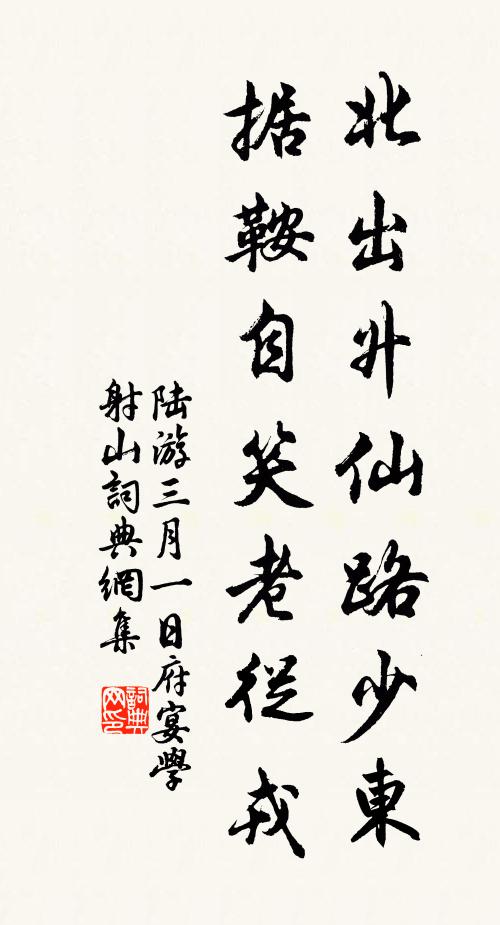 北出升仙路少東
据鞍自笑老從戎
陆游三月一日府宴學
射山詞典網集
詞典网印